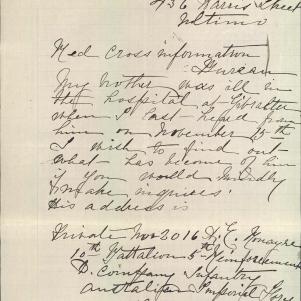 436 Harris Street
Ultimo
Red Cross information
Bureau
My brother was all in
the hospital at Gibralter
when I last heped from
him on November 15th
I wish to find out
what has become of him
if you would kindly
make inquires.
His address is
Private No 2016 J.E.
10th Battalion 5th Reinforcement
D. Company Infantry
Australian Imperial Force